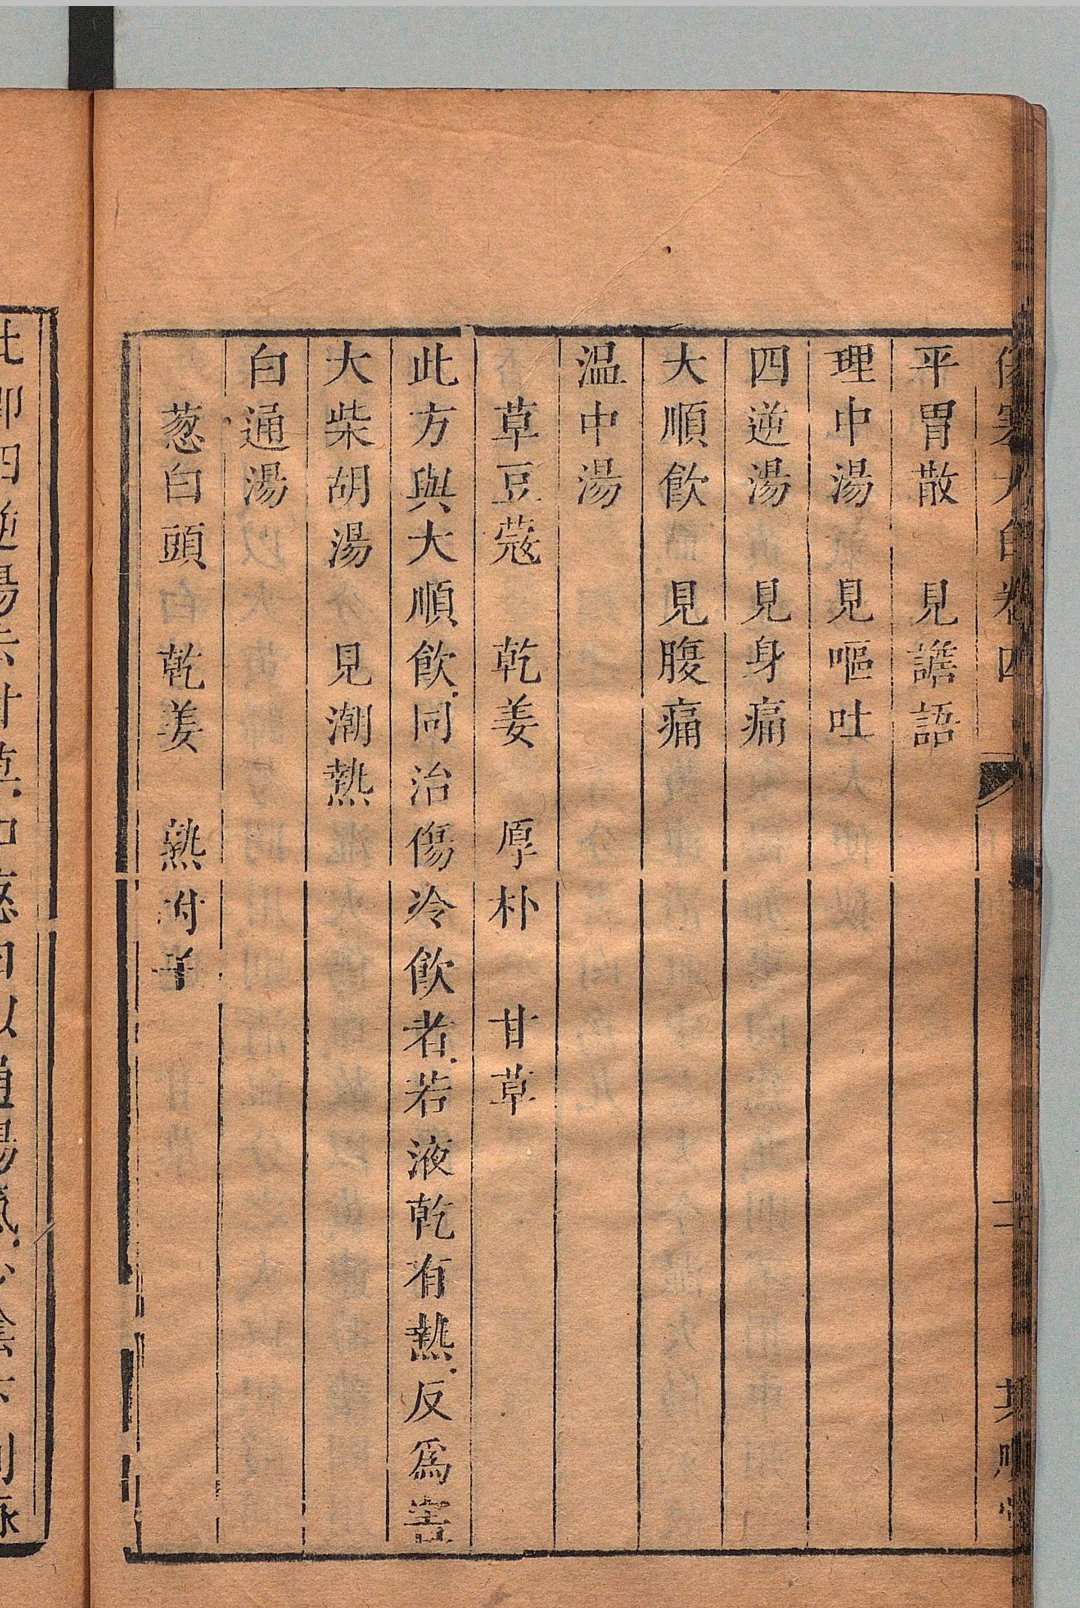 平胃散　見譫語
理中湯　見嘔吐
四逆湯　見身痛
大順飲　見腹痛
温中湯
草豆蔻　乾姜　厚朴　甘草
此方與大順飲同治傷冷飲者若液乾有熱反爲害
大柴胡湯　見潮熱
白通湯
葱白頭　乾姜　熟附子
此即四逆湯去甘草加葱白以通陽氣少陰下利脉